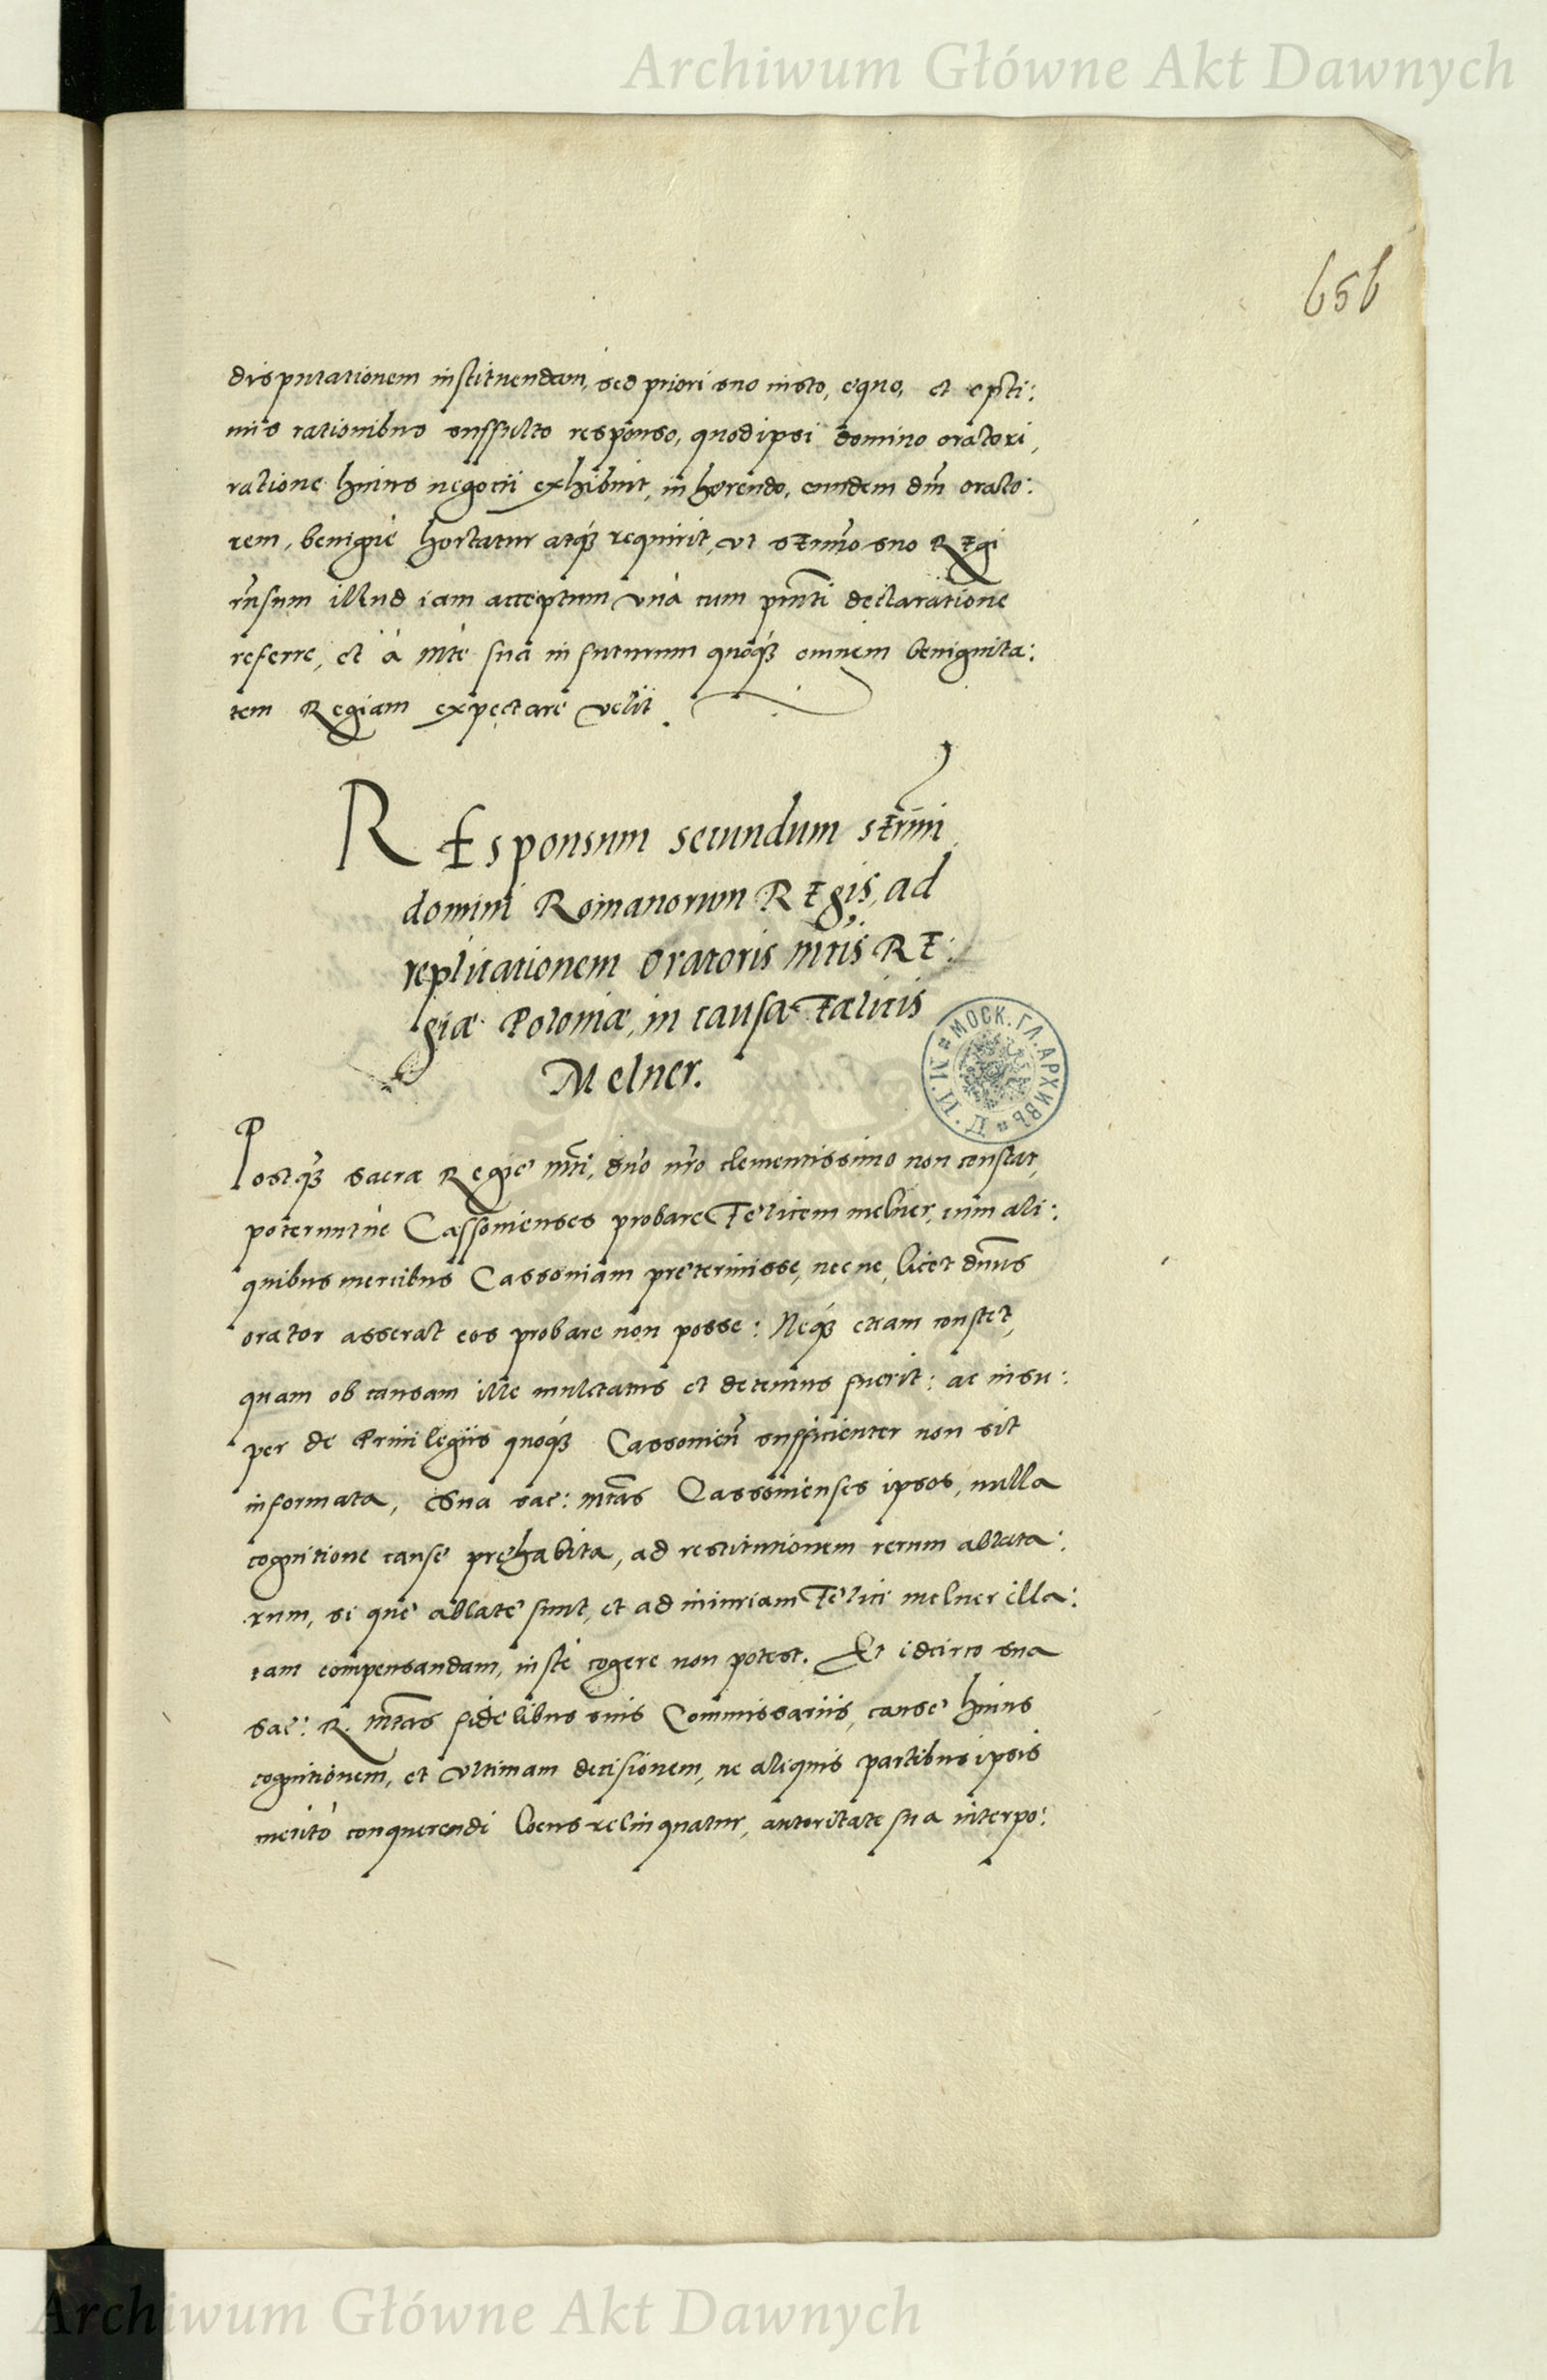 Archiwum Główne Akt Dawnych
656
disputationem instituendam, sed priori suo iusto, equo, et opti:
mis rationibus suffulto responso, quod ipsi domino oratori,
ratione huius negocii exhibuit, inherendo, eundem dnm orato:
rem, benigne hortatur atq requirit, ut sermo suo Regi
rnsum illud iam acceptum unà cum pnti declaratione
referre, et à mte sua in futurum quoq omnem benignita:
tem Regiam expectare velit.
REsponsum secundum sermi
domini Romanorum REgis, ad
replicationem Oratoris mtis RE:
giæ Poloniæ, in causa Fælicis
Melner.
Postq sacræ Regie mti, dno nro clementissimo non constat,
poteruntne Cassovienses probare Felicem melner, cum ali:
quibus mercibus Cassoviam preterivisse, nec ne, licet dnus
orator asserat eos probare non posse: Neq etiam constet,
quam ob causam ille mulctatus et detentus fuerit: ac insu:
per de Privilegiis quoq Cassovien sufficienter non sit
informata, Sua sac: mtas Cassovienses ipsos, nulla
cognitione cause prehabita, ad restitutionem rerum ablata:
rum, si que ablate sunt, et ad iniuriam Felici melner illa:
tam compensandam, iuste cogere non potest. Et idcirco sua
sac: R. mtas fidelibus suis Commissariis, cause huius
cognitionem, et ultimam decisionem, ne aliquis partibus ipsis
meritò conquerendi locus relinquatur, autoritate sua interpo:
МОСК. ГЛ. АРХИВЪ М. И. Д.
Archiwum Główne Akt Dawnych